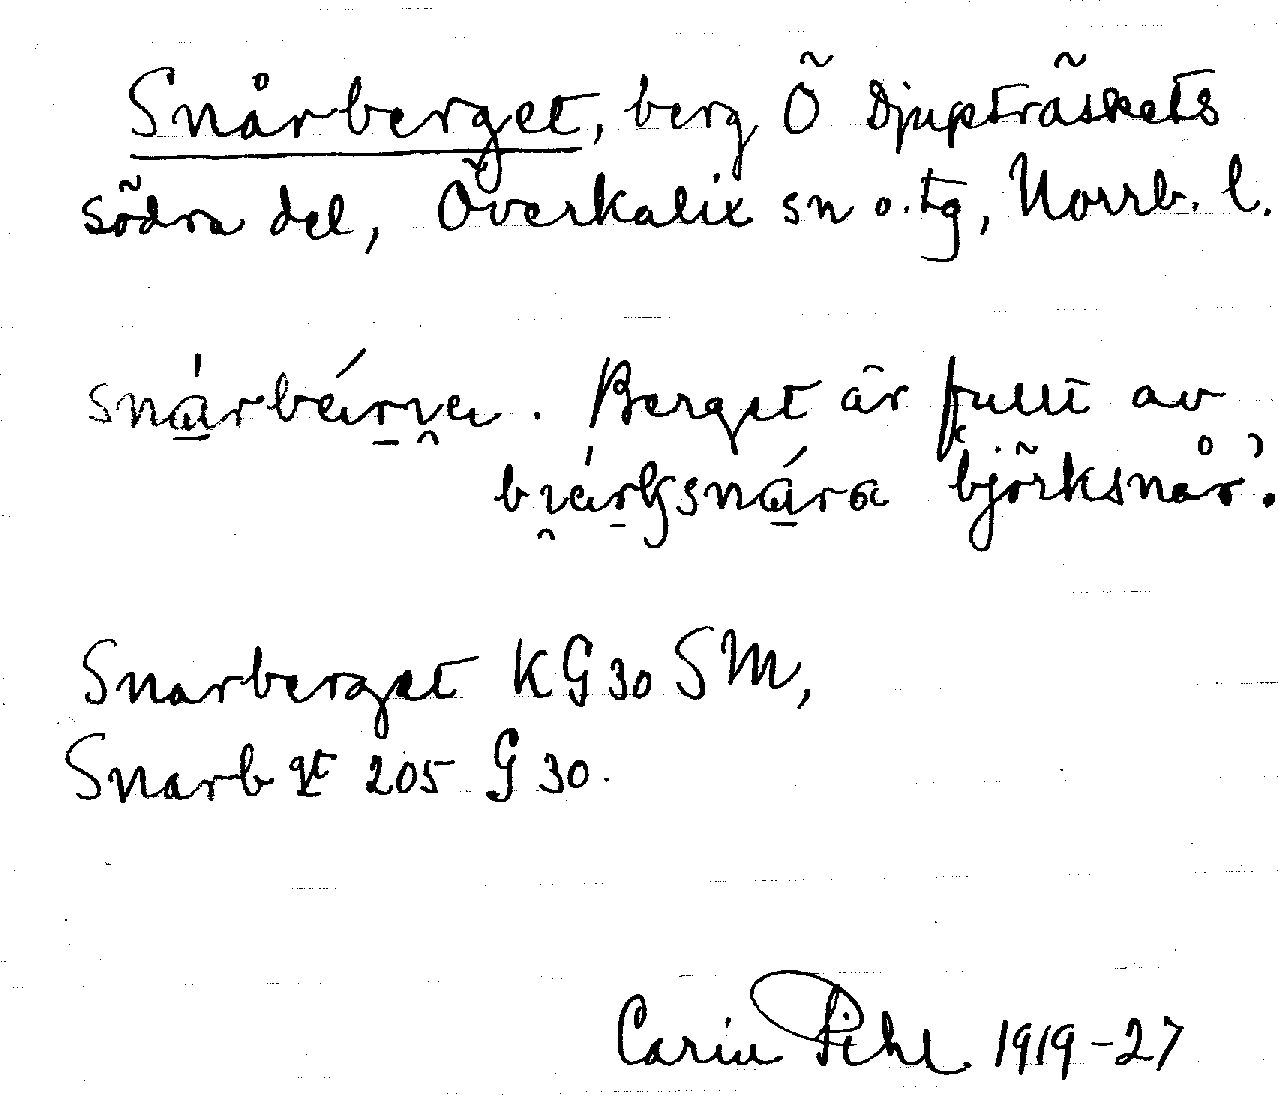 Snårberget, berg Ö Djupträskets
södra del, Överkalix sn o. tg, Norrb. l.
Berget är fullt av
björksnår'.
Snarberget KG 30 SM,
Snarb gt 205 G 30.
Carin Pihl 1919-27